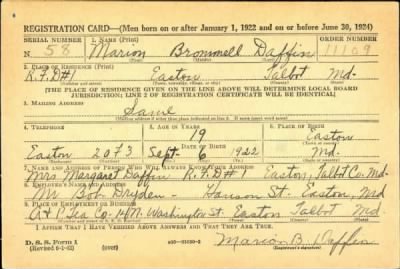 REGISTRATION CARD—(Men born on or after January 1, 1922 and on or before June 30, 1924)
SERIAL NUMBER 1. NAME (Print) ORDER NUMBER
N 58 Marion Brommell Daffin 11109
(First) (Middle) (Last)
2. PLACE OF RESIDENCE (Print)
R.F.D#1 Easton Talbot Md.
[THE PLACE OF RESIDENCE GIVEN ON THE LINE ABOVE WILL DETERMINE LOCAL BOARD JURISDICTION; LINE 2 OF REGISTRATION CERTIFICATE WILL BE IDENTICAL]
3. MAILING ADDRESS
Same
4. TELEPHONE 5. AGE IN YEARS 6. PLACE OF BIRTH
19 Easton
DATE OF BIRTH
Easton 207J Sept. 6 1922 Md.
7. NAME AND ADDRESS OF PERSON WHO WILL ALWAYS KNOW YOUR ADDRESS
Mrs Margaret Daffin R.F.D#1 Easton, Talbot Co. Md.
8. EMPLOYER'S NAME AND ADDRESS
Mr Bob Dryden— Hanson St. Easton, Md
9. PLACE OF EMPLOYMENT OR BUSINESS
A&P Tea Co. Washington St. Easton Talbot Md.
I AFFIRM THAT I HAVE VERIFIED ABOVE ANSWERS AND THAT THEY ARE TRUE.
D. S. S. Form 1
(Revised 6-1-42) (over)
Marion B. Daffin
(Registrant's signature)